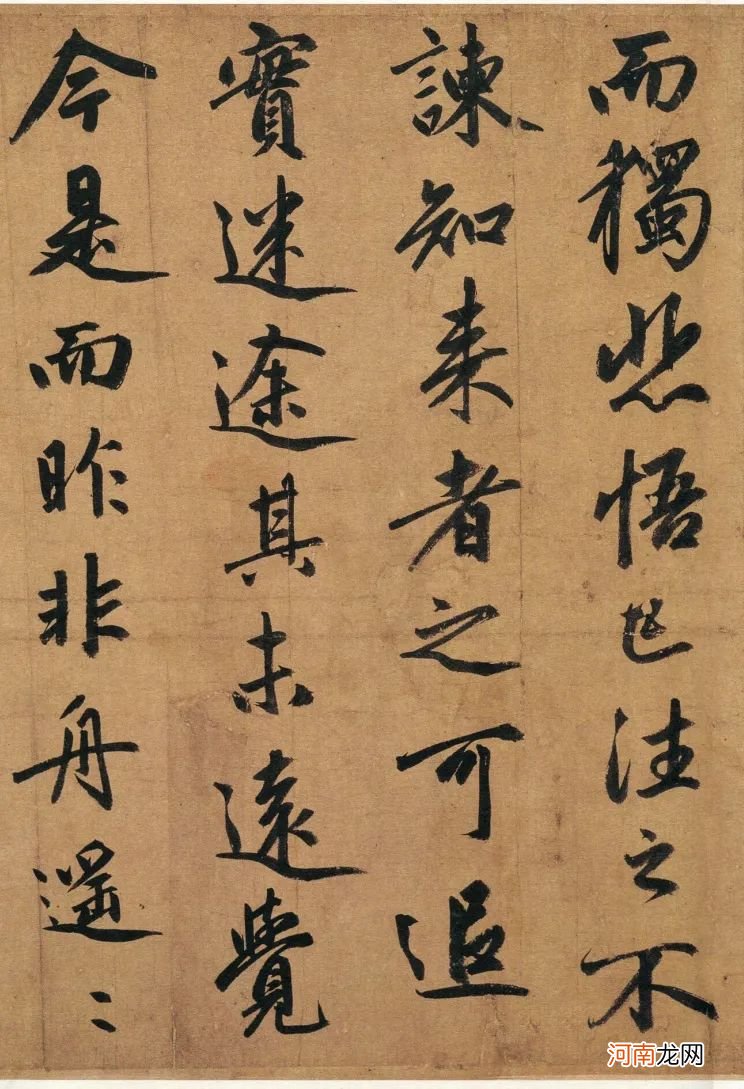 而獨悲悟已往之不
諫知来者之可追
實迷途其未遠覺
今是而昨非舟遥〻
河南龙网